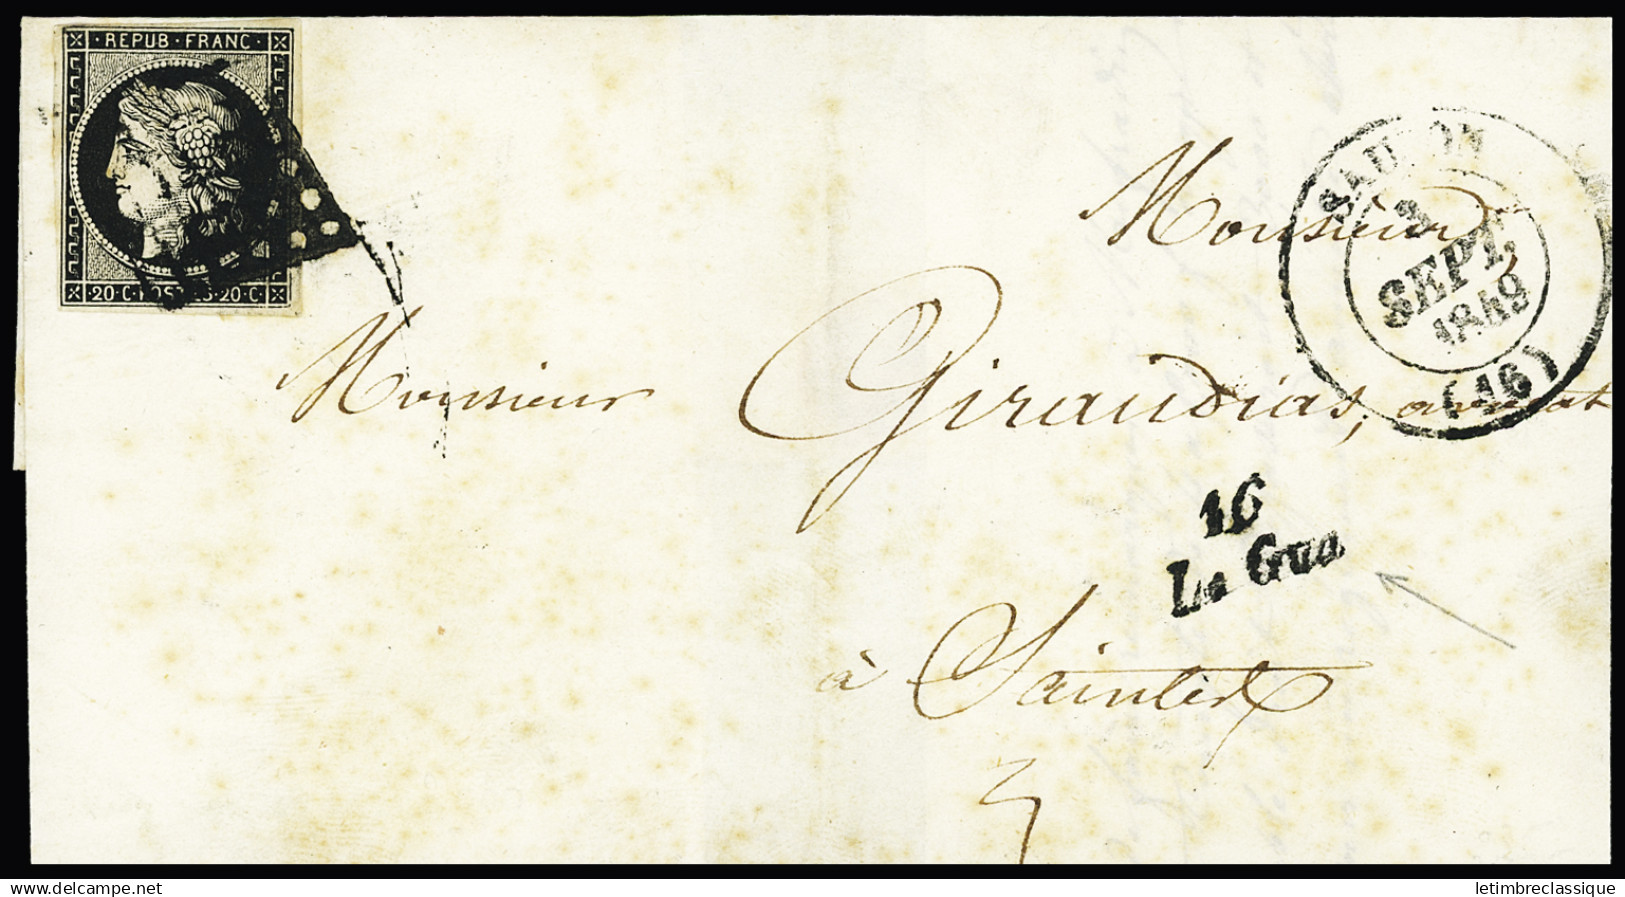 REPUB·FRANC·
·20·C·POSTES·20·C·
SAUJON
3
SEPT.
1849
(16)
Monsieur,
Monsieur Giraudias, avocat
16
Le Gua
à Saintes
www.delcampe.net
letimbreclassique